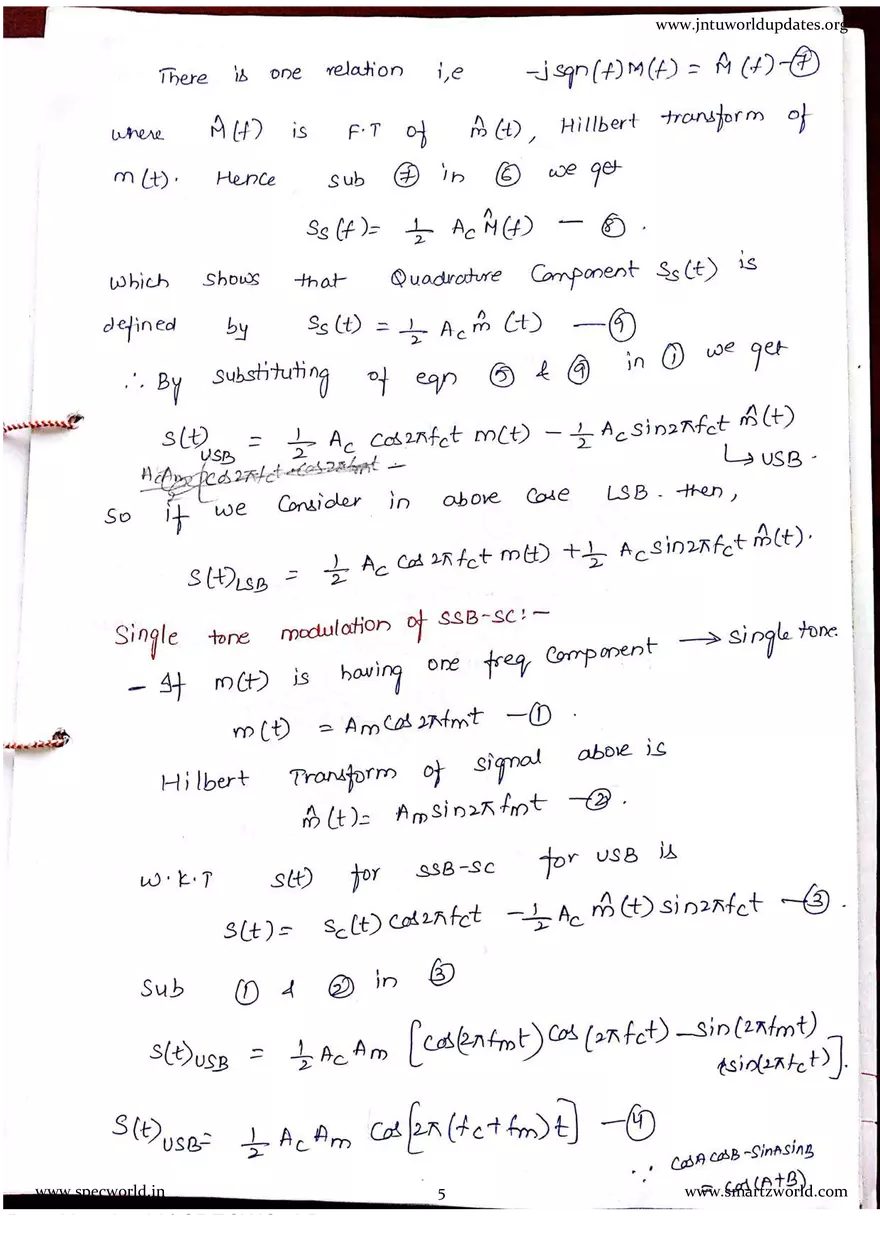 www.jntuworldupdates.org
There is one relation i,e -jsgn(f)M(f) = M̂(f) - ⑦
where M̂(f) is F.T of m̂(t), Hillbert transform of
m(t). Hence sub ⑦ in ⑥ we get
Ss(f) = 1/2 Ac M̂(f) — ⑧.
which shows that Quadrature Component Ss(t) is
defined by Ss(t) = 1/2 Ac m̂(t) — ⑨
∴ By substituting of eqn ⑤ & ⑨ in ① we get
S(t)USB = 1/2 Ac cos2πfct m(t) - 1/2 Ac sin2πfct m̂(t)
↳ USB.
So if we Consider in above case LSB. then,
S(t)LSB = 1/2 Ac cos 2πfct m(t) + 1/2 Ac sin2πfct m̂(t).
Single tone modulation of SSB-SC:-
- If m(t) is having one freq Component → single tone.
m(t) = Am cos 2πfmt — ①.
Hilbert Transform of signal above is
m̂(t) = Am sin2πfmt — ②.
W.K.T S(t) for SSB-SC for USB is
S(t) = Sc(t) cos2πfct - 1/2 Ac m̂(t) sin2πfct — ③.
Sub ① & ② in ③
S(t)USB = 1/2 Ac Am [cos(2πfmt) cos(2πfct) - sin(2πfmt)
sin(2πfct)].
S(t)USB = 1/2 Ac Am cos[2π(fc+fm)t] — ④
∵ cosA cosB - sinA sinB
= cos(A+B)
www.specworld.in 5 www.smartzworld.com